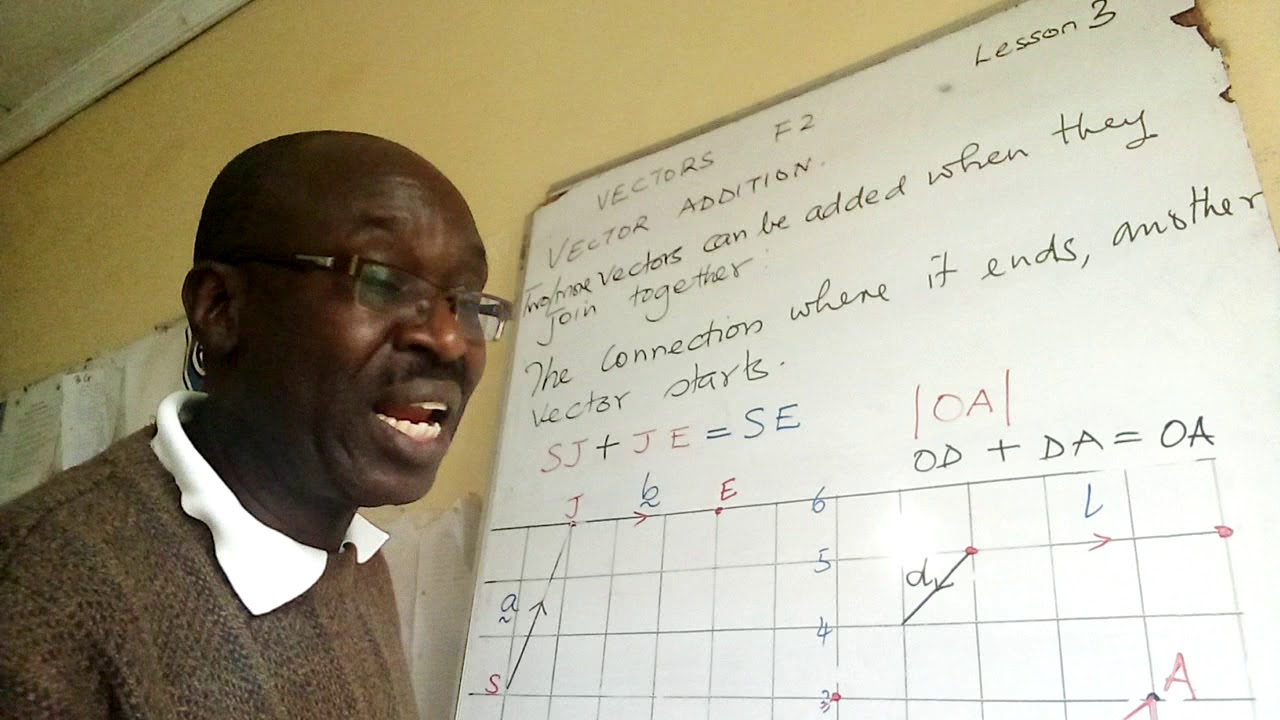 Lesson 3
VECTORS F2
VECTOR ADDITION.
Two/more vectors can be added when they
join together
The connection where it ends, another
vector starts.
SJ + JE = SE
|OA|
OD + DA = OA
J b E 6
5
a
d
l
4
S
3
A